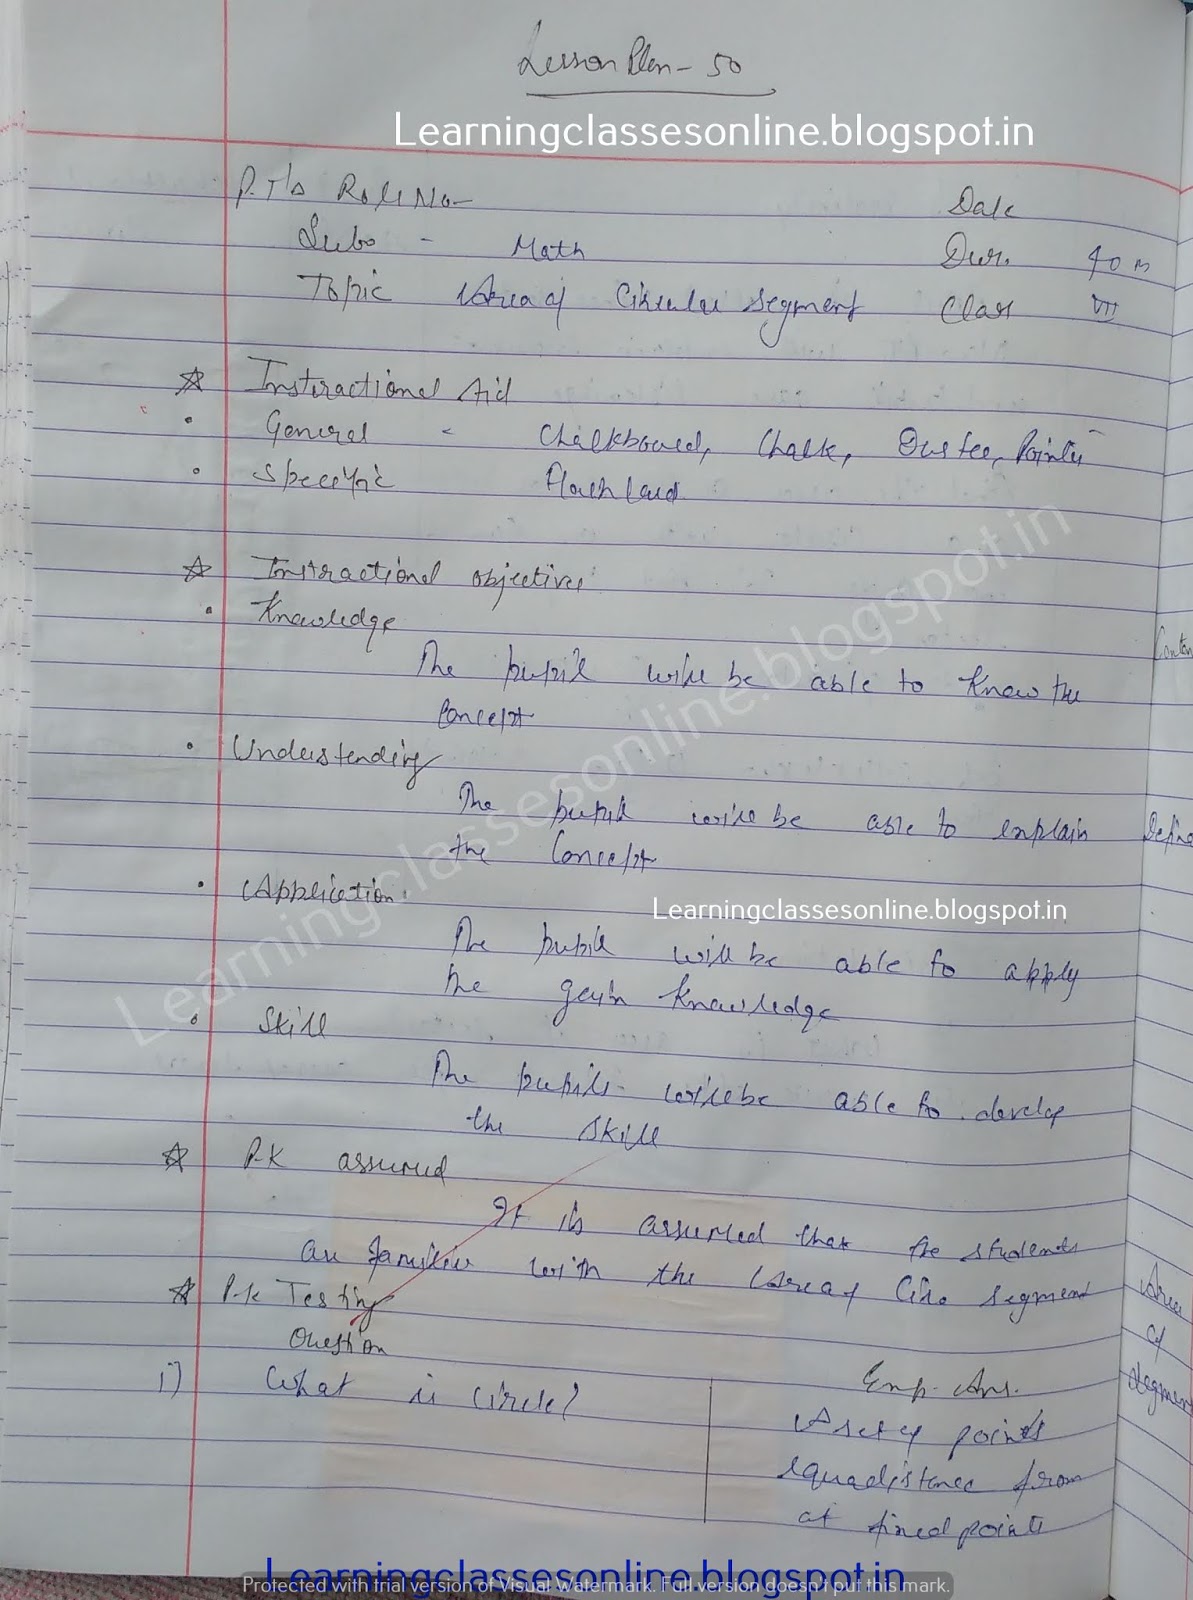 Lesson Plan - 50
Learningclassesonline.blogspot.in
P.T's Roll No- Date
Sub - Math Dur. 40 m
Topic Area of Cirular segment Class VII
Instractional Aid
General - Chalkboard, Chalk, Duster, Pointer
Specific Flash Card
Instractional objectives
Knowledge
The pupil will be able to know the
Concept
Understanding
The pupil will be able to explain
the Concept
Application
Learningclassesonline.blogspot.in
The pupil will be able to apply
the gain knowledge
Skill
The pupils will be able to develop
the skill
P.K assumed
It is assumed that the students
are familier with the Area of Cir. segment
P.K Testing
Question
i) What is circle? Exp. Ans.
A set of points
equadistance from
at fixed points
Learningclassesonline.blogspot.in
Learningclassesonline.blogspot.in
Protected with trial version of Visual Watermark. Full version doesn't put this mark.
Area
of
segmen